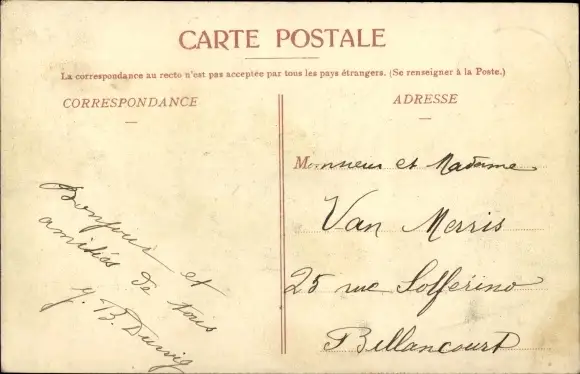 CARTE POSTALE
La correspondance au recto n'est pas acceptée par tous les pays étrangers. (Se renseigner à la Poste.)
CORRESPONDANCE
Bonjour et
amitiés de tous
J. B.
ADRESSE
Monsieur et Madame
Van Merris
25 rue Solférino
Billancourt